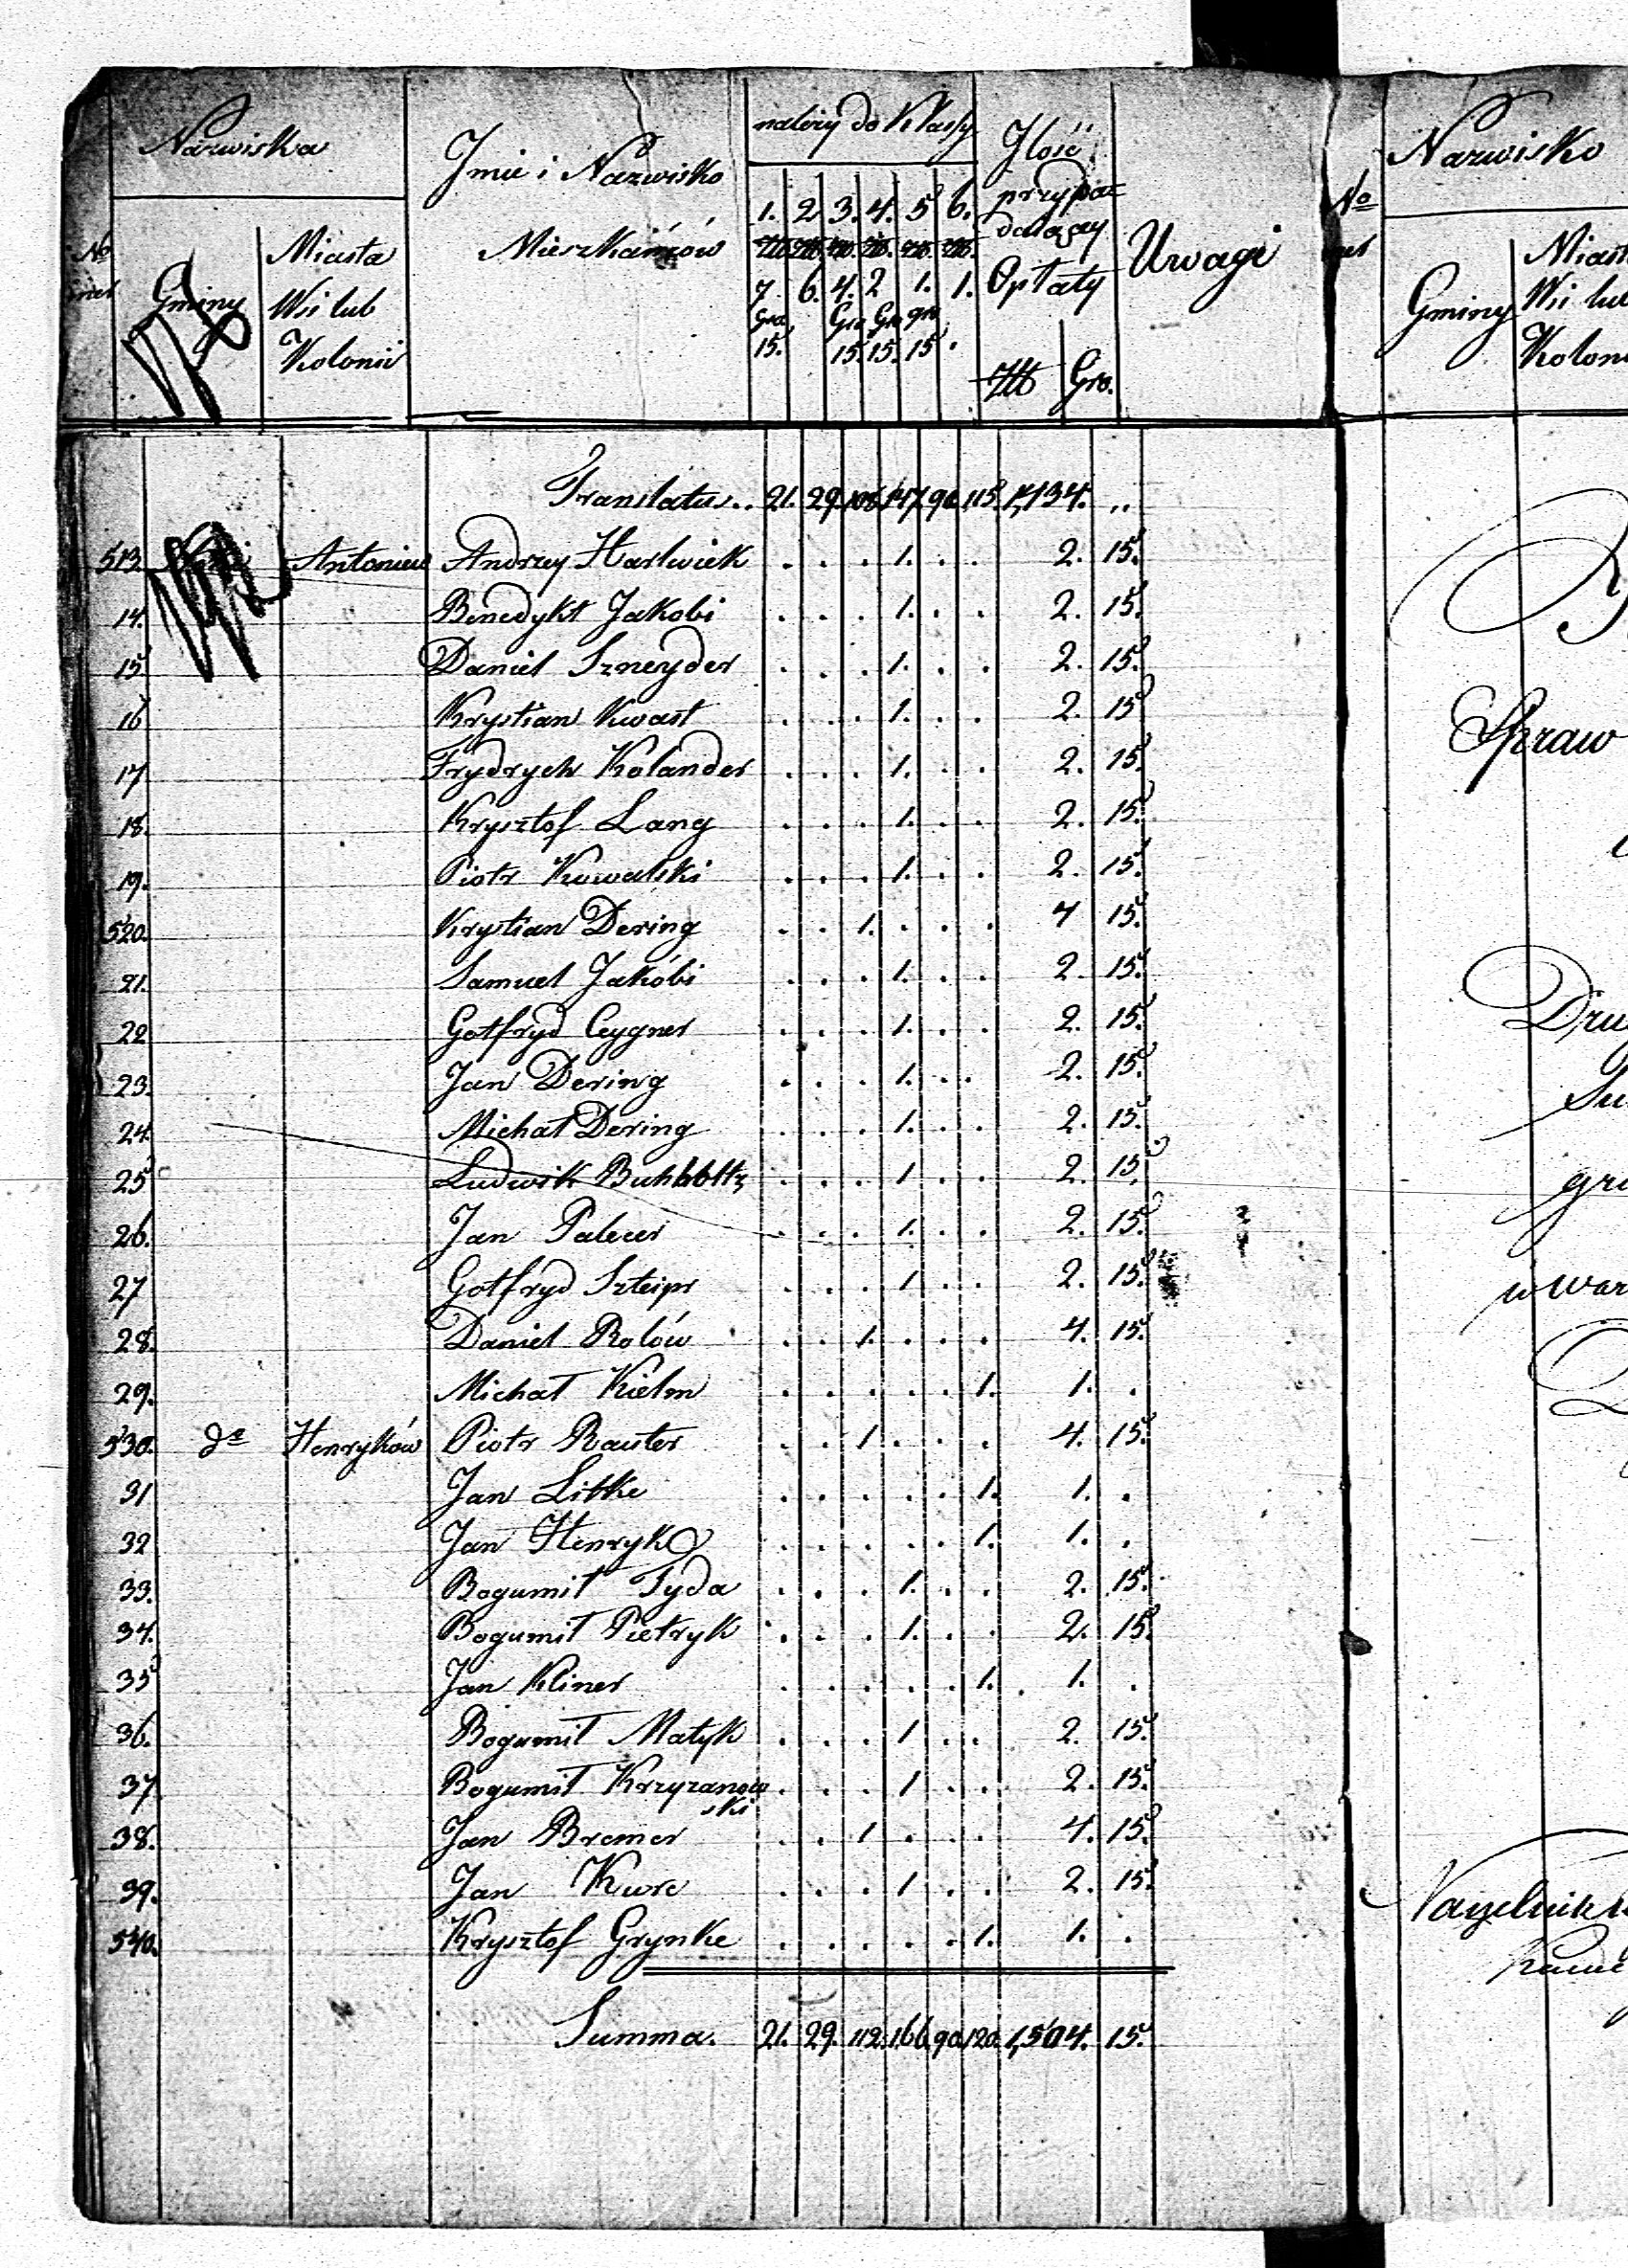 Nazwiska
Jmie i Nazwisko
Mieszkańców
należy do Klassy
Jlość
przypa=
daiącey
Opłaty
Uwagi
No
Gminy
Miasta
Wsi lub
Kolonii
1. 2 3. 4. 5 6.
Złt Złt. Złt. Złt. Złt. Złt.
7 6. 4. 2 1. 1.
Gro Gro Gro gro
15. 15. 15. 15 .
Złt Gro.
Translatus.. 21. 29. 108. 147. 90. 115. 1,434. ..
513. Antoniew Andrzey Harlwick . . . 1. . . 2. 15.
14. Benedykt Jakobi . . . 1. . . 2. 15.
15. Daniel Szneyder . . . 1. . . 2. 15.
16 Krystian Kwast . . . 1. . . 2. 15
17 Frydrych Kolander . . . 1. . . 2. 15.
18. Krysztof Lang . . . 1. . . 2. 15.
19. Piotr Kowalski . . . 1. . . 2. 15.
520. Krystian Dering . . 1. . . . 4 15.
21. Samuel Jakóbi . . . 1. . . 2. 15.
22 Gotfryd Ceygner . . . 1. . . 2. 15.
23. Jan Dering . . . 1. . . 2. 15.
24. Michał Dering . . . 1. . . 2. 15.
25 Ludwik Buhholtz . . . 1 . . 2. 15.
26. Jan . . . 1. . . 2. 15.
27 Gotfryd . . . 1 . . 2. 15.
28. Daniel Rolów . . 1. . . . 4. 15.
29. Michał Kielm . . . . . 1. 1. .
530. do Henryków Piotr Rauter . . 1 . . . 4. 15.
31 Jan Litke . . . . . 1. 1. .
32 Jan Henryk . . . . . 1. 1. .
33. Bogumił Tyda . . . 1. . . 2. 15.
34. Bogumił Pietryk . . . 1. . . 2. 15.
35 Jan Kliner . . . . . 1. 1. .
36. Bogumił Matyk . . . 1 . . 2. 15.
37 Bogumił Krzyzanow
ski . . . 1 . . 2. 15.
38. Jan Bremer . . 1 . . . 4. 15.
39. Jan Kurc . . . 1 . . 2. 15.
540. Krysztof Grynke . . . . . 1. 1. .
Summa. 21. 29. 112. 166. 90. 120. 1,504. 15.
Nazwisko
No
Gminy
Miast
Wsi lub
Kolon
Spraw
Dru
gro
w War